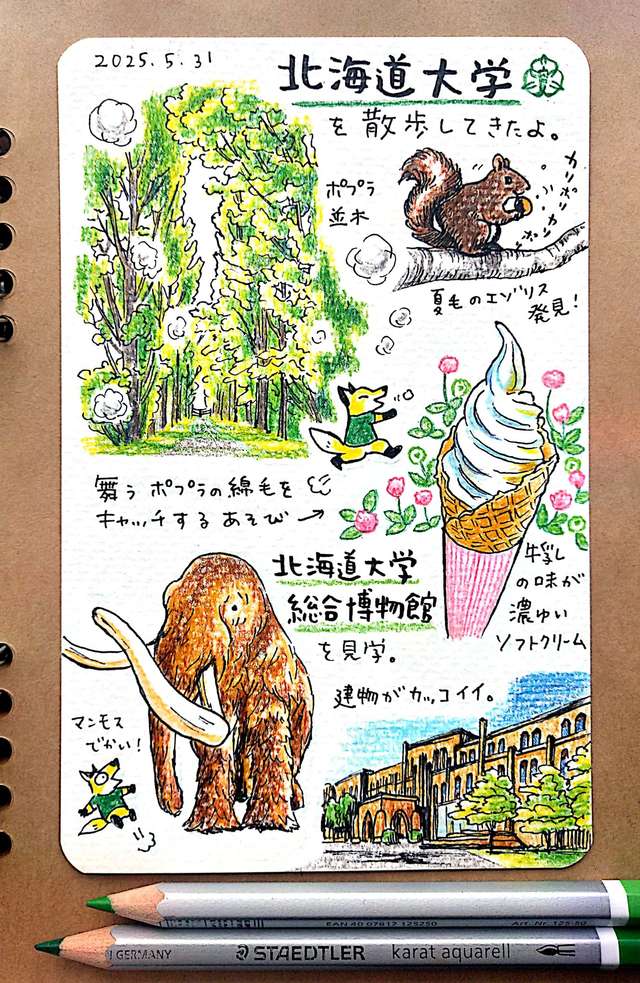 2025.5.31
北海道大学
を散歩してきたよ。
ポプラ
並木
カリポリ
ポリポリ
夏毛のエゾリス
発見！
舞う ポプラの綿毛を
キャッチする あそび →
牛乳
の味が
濃ゆい
ソフトクリーム
北海道大学
総合博物館
を見学。
建物がカッコイイ。
マンモス
でかい！
EAN 40 07817 125250
Art.-Nr. 125-50
GERMANY
STAEDTLER karat aquarell